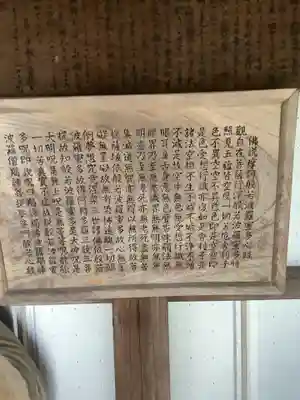 佛説摩訶般若波羅蜜多心経
観自在菩薩行深般若波羅蜜多時
照見五蘊皆空度一切苦厄舎利子
色不異空空不異色色即是空空即
是色受想行識亦復如是舎利子是
諸法空相不生不滅不垢不浄不増
不減是故空中無色無受想行識無
眼耳鼻舌身意無色声香味触法無
眼界乃至無意識界無無明亦無無
明尽乃至無老死亦無老死尽無苦
集滅道無智亦無得以無所得故菩
提薩埵依般若波羅蜜多故心無罣
礙無罣礙故無有恐怖遠離一切顛
倒夢想究竟涅槃三世諸佛依般若
波羅蜜多故得阿耨多羅三藐三菩
提故知般若波羅蜜多是大神呪是
大明呪是無上呪是無等等呪能除
一切苦真實不虚故説般若波羅蜜
多呪即説呪曰羯諦羯諦波羅羯諦
波羅僧羯諦菩提薩婆訶般若心経